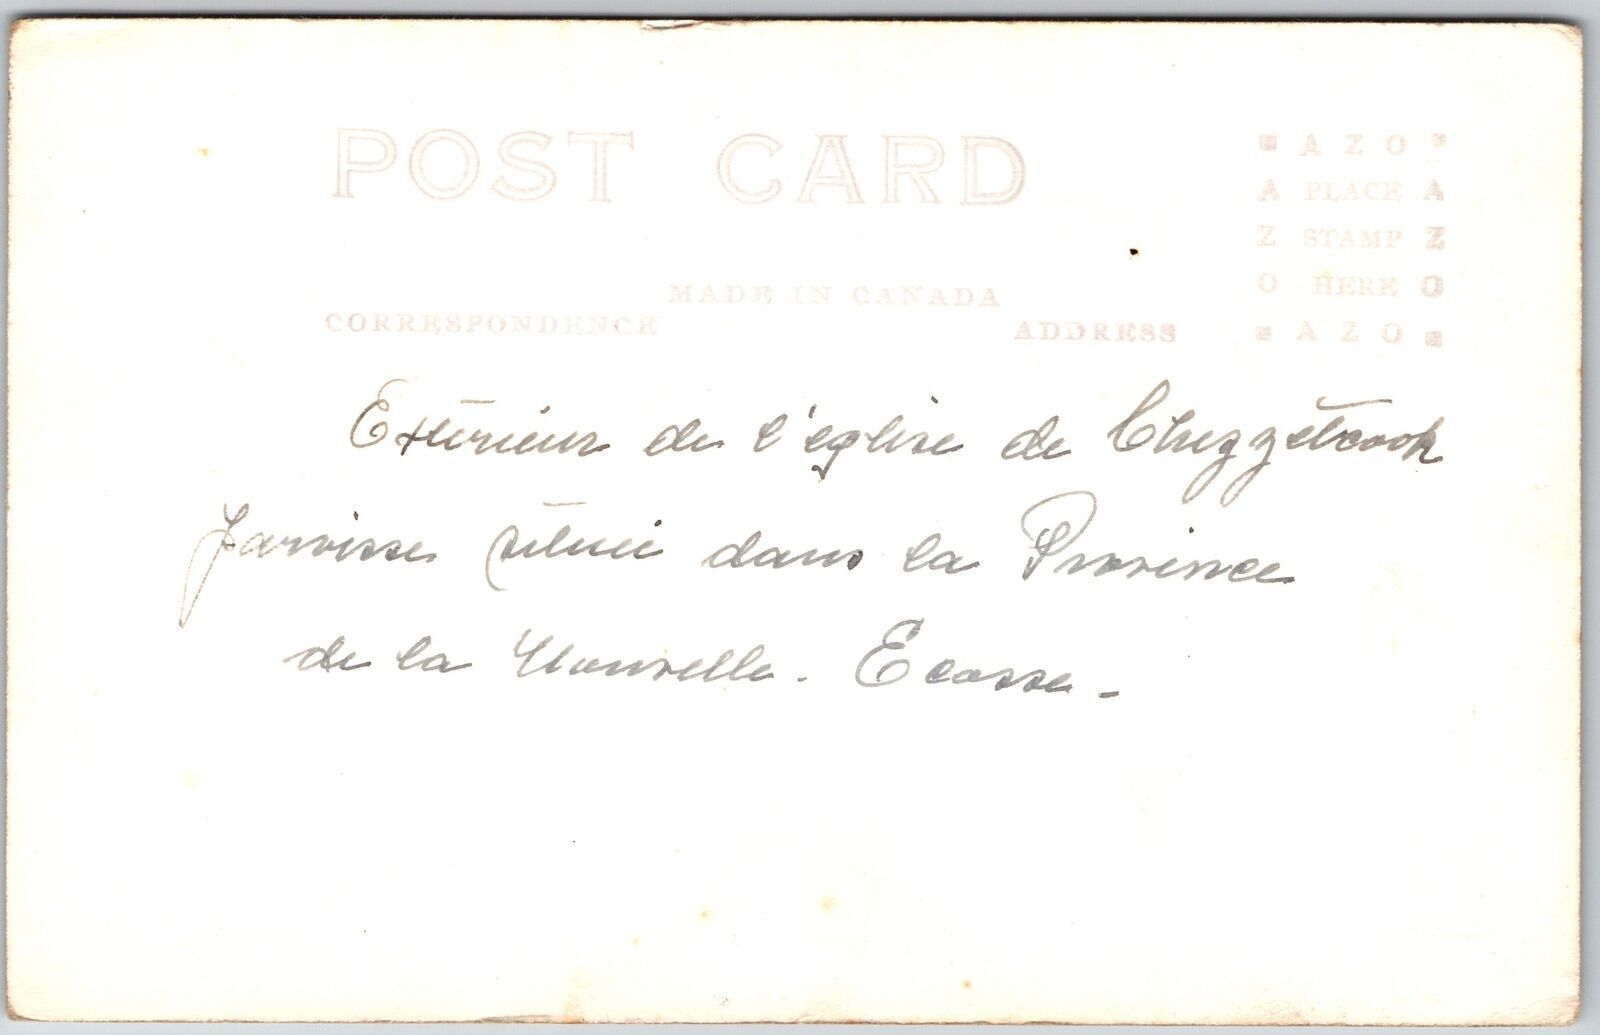 POST CARD
MADE IN CANADA
CORRESPONDENCE
ADDRESS
■ A Z O ■
A PLACE A
Z STAMP Z
O HERE O
■ A Z O ■
Extérieur de l'église de Chezzetcook
Paroisse située dans la Province
de la Nouvelle-Ecosse-